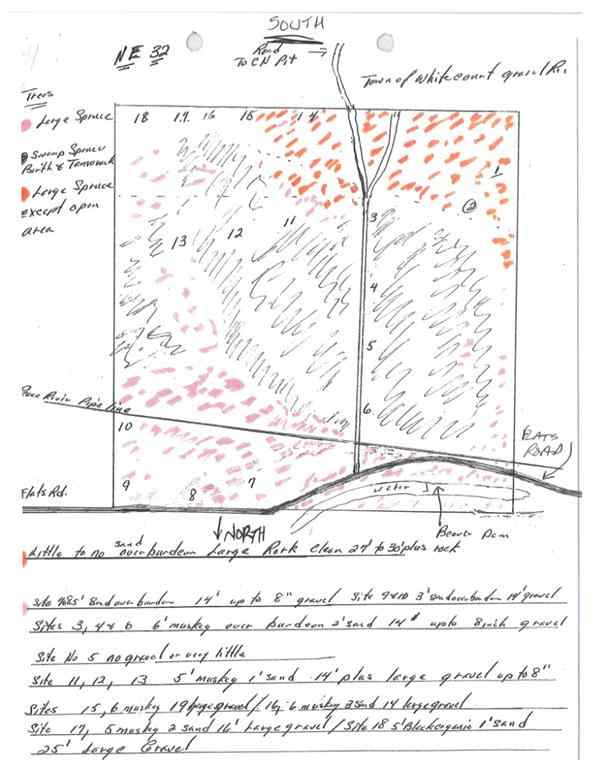 SOUTH
NE 32
Road
To CN Pit
Town of Whitecourt gravel
Trees
Large Spruce
18 17 16 15 14
Swamp Spruce
Large Spruce
Except open
area
1
2
3
11
12
13
4
5
6
Pipe line
10
FLATS
ROAD
9
8
7
Flats Rd.
water
NORTH
Beaver Dam
sand
Little to no overburden Large Rock Clean 27' to 30' plus rock
Site overburden 14' up to 8" gravel Site 9 & 10 3' overburden gravel
Sites 3, 4 & 6 6' muskey over burden 2' sand 14' up to 8 inch gravel
Site No 5 no gravel or very little
Site 11, 12, 13 5' muskey 1' sand 14' plus large gravel up to 8"
Sites 15, 6 muskey 19 large gravel / 16, 6 muskey 2 sand 14 large gravel
Site 17, 5 muskey 2 sand 16' Large gravel / Site 18 5' Black organic 1' sand
25' Large Gravel